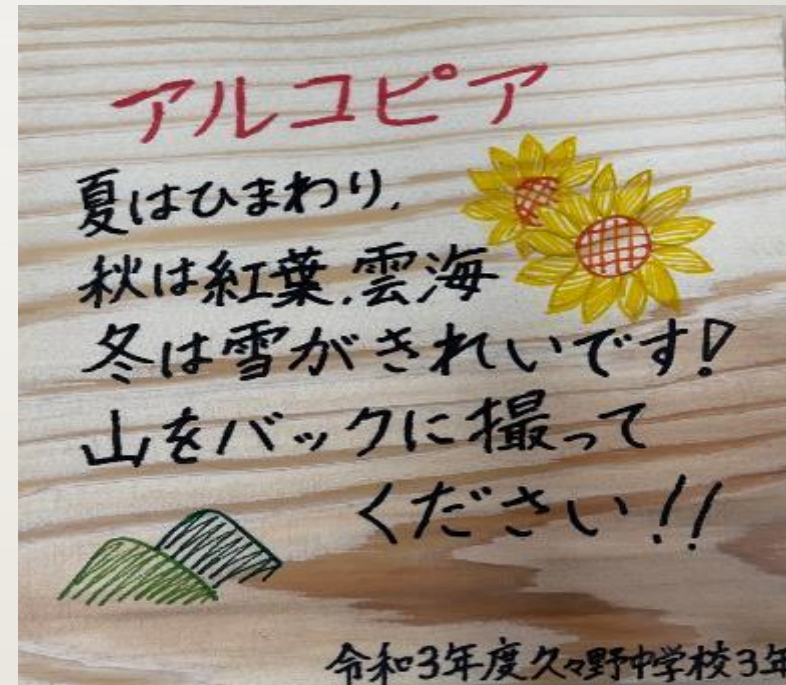 アルコピア
夏はひまわり、
秋は紅葉、雲海
冬は雪がきれいです!
山をバックに撮って
ください!!
令和3年度久々野中学校3年